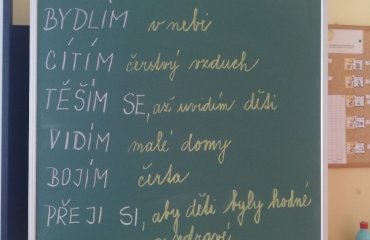 BYDLÍM v nebi
CÍTÍM čerstvý vzduch
TĚŠÍM SE, až uvidím děti
VIDÍM malé domy
BOJÍM čerta
PŘEJI SI, aby děti byly hodné
zdravé